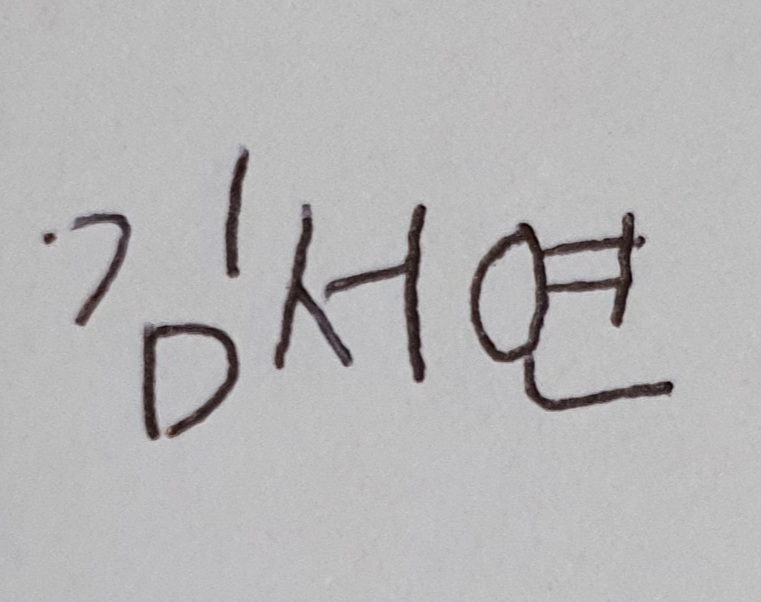 김서연